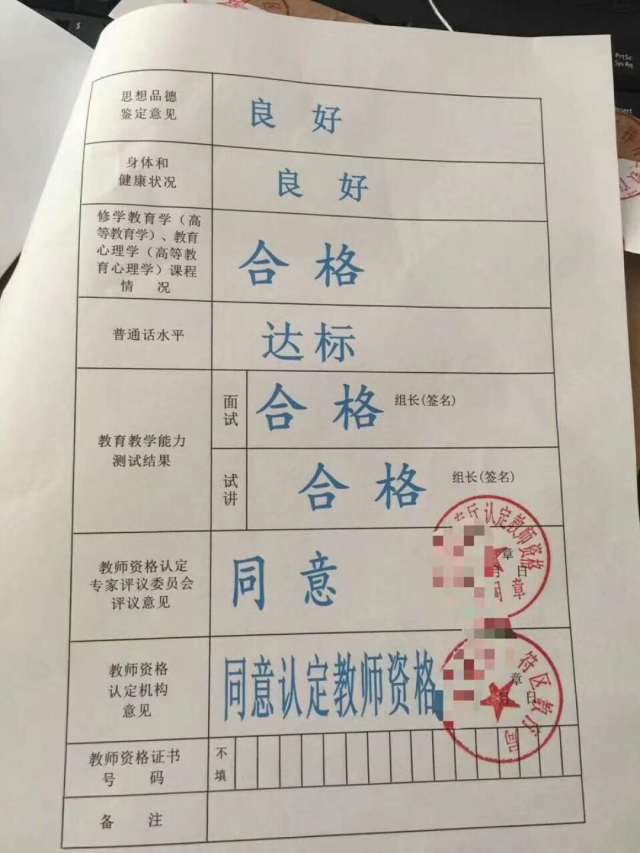 思想品德
鉴定意见
良 好
身体和
健康状况
良 好
修学教育学（高
等教育学）、教育
心理学（高等教
育心理学）课程
情 况
合格
普通话水平
达标
教育教学能力
测试结果
面试
合格
组长(签名)
试讲
合格
组长(签名)
教师资格认定
专家评议委员会
评议意见
同意
认定教师资格
章
日
章
教师资格
认定机构
意见
同意认定教师资格
章
月 日
教师资格证书
号 码
不填
备 注